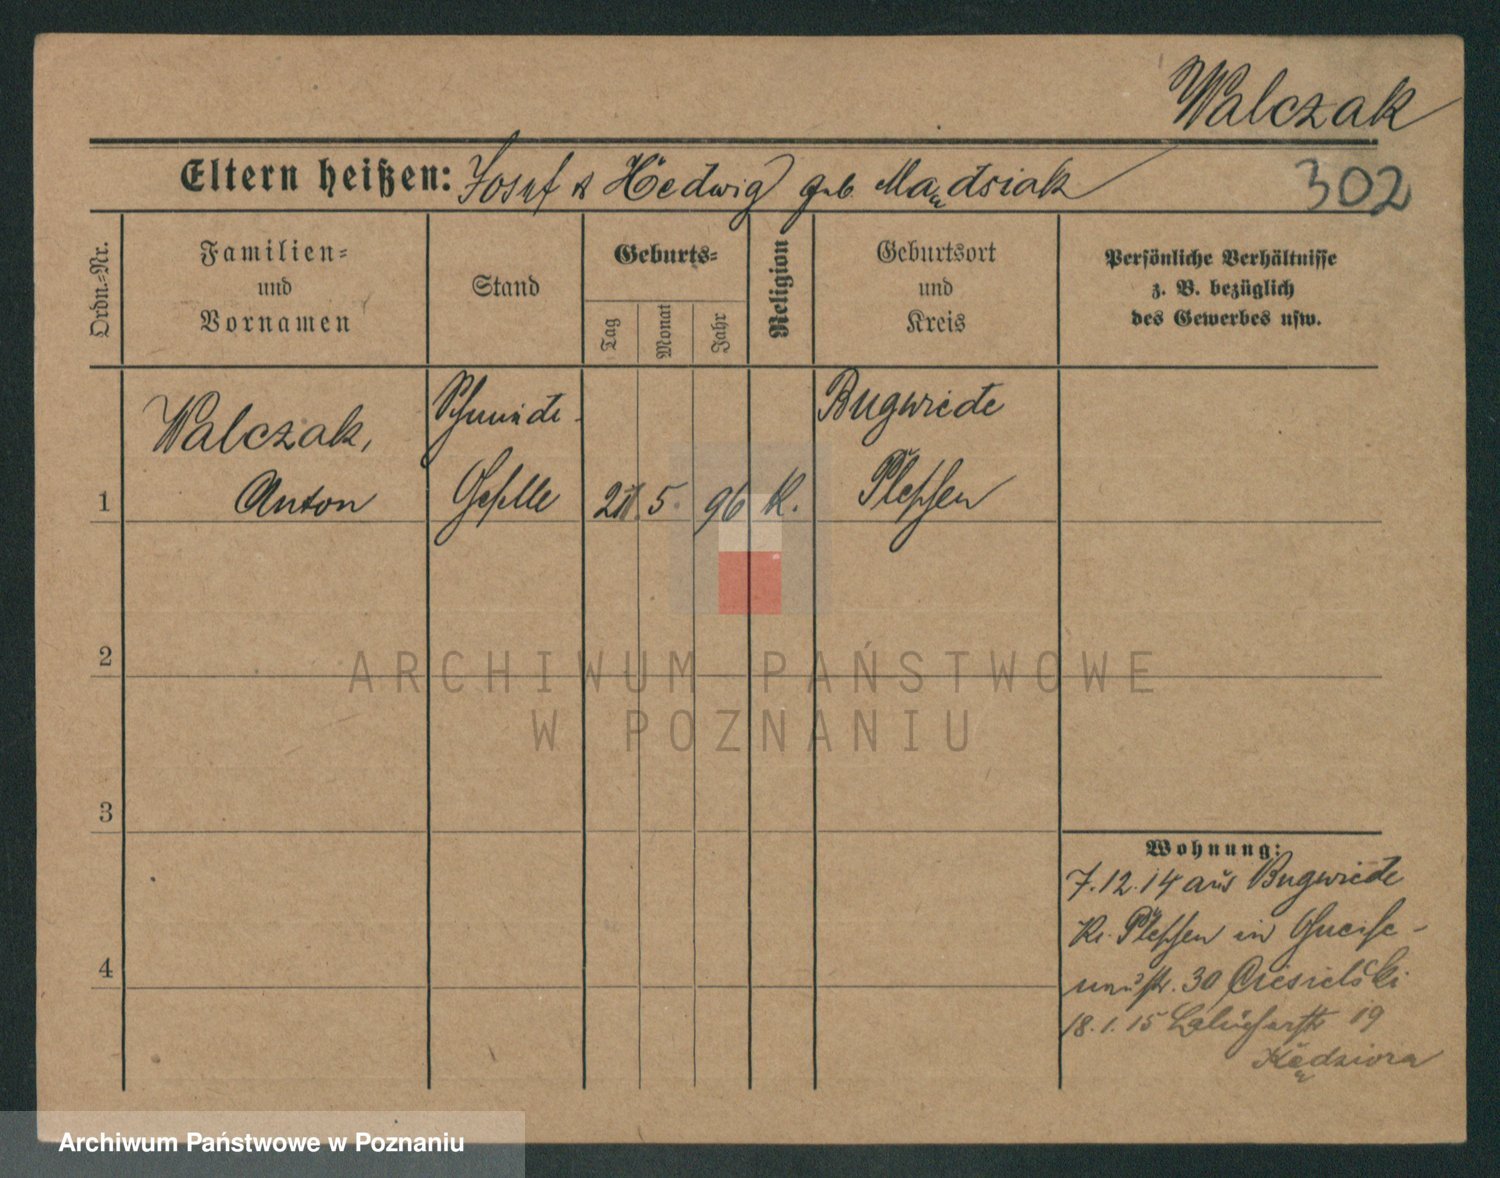 Walczak
Eltern heißen: Josef & Hedwig geb. Mandsiak
302
Ordn.-Nr.
Familien-
und
Vornamen
Stand
Geburts-
Tag
Monat
Jahr
Religion
Geburtsort
und
Kreis
Persönliche Verhältnisse
z. B. bezüglich
des Gewerbes usw.
Walczak,
Schmiede-
Bugwiede
1
Anton
Geselle
5.
96
K.
Pleschen
2
ARCHIWUM PAŃSTWOWE
W POZNANIU
3
Wohnung:
7.12.14 aus Bugwiede
Kr. Pleschen in Gneise-
naustr. 30 Ciesielski
4
18.1.15 19
Kędziora
Archiwum Państwowe w Poznaniu